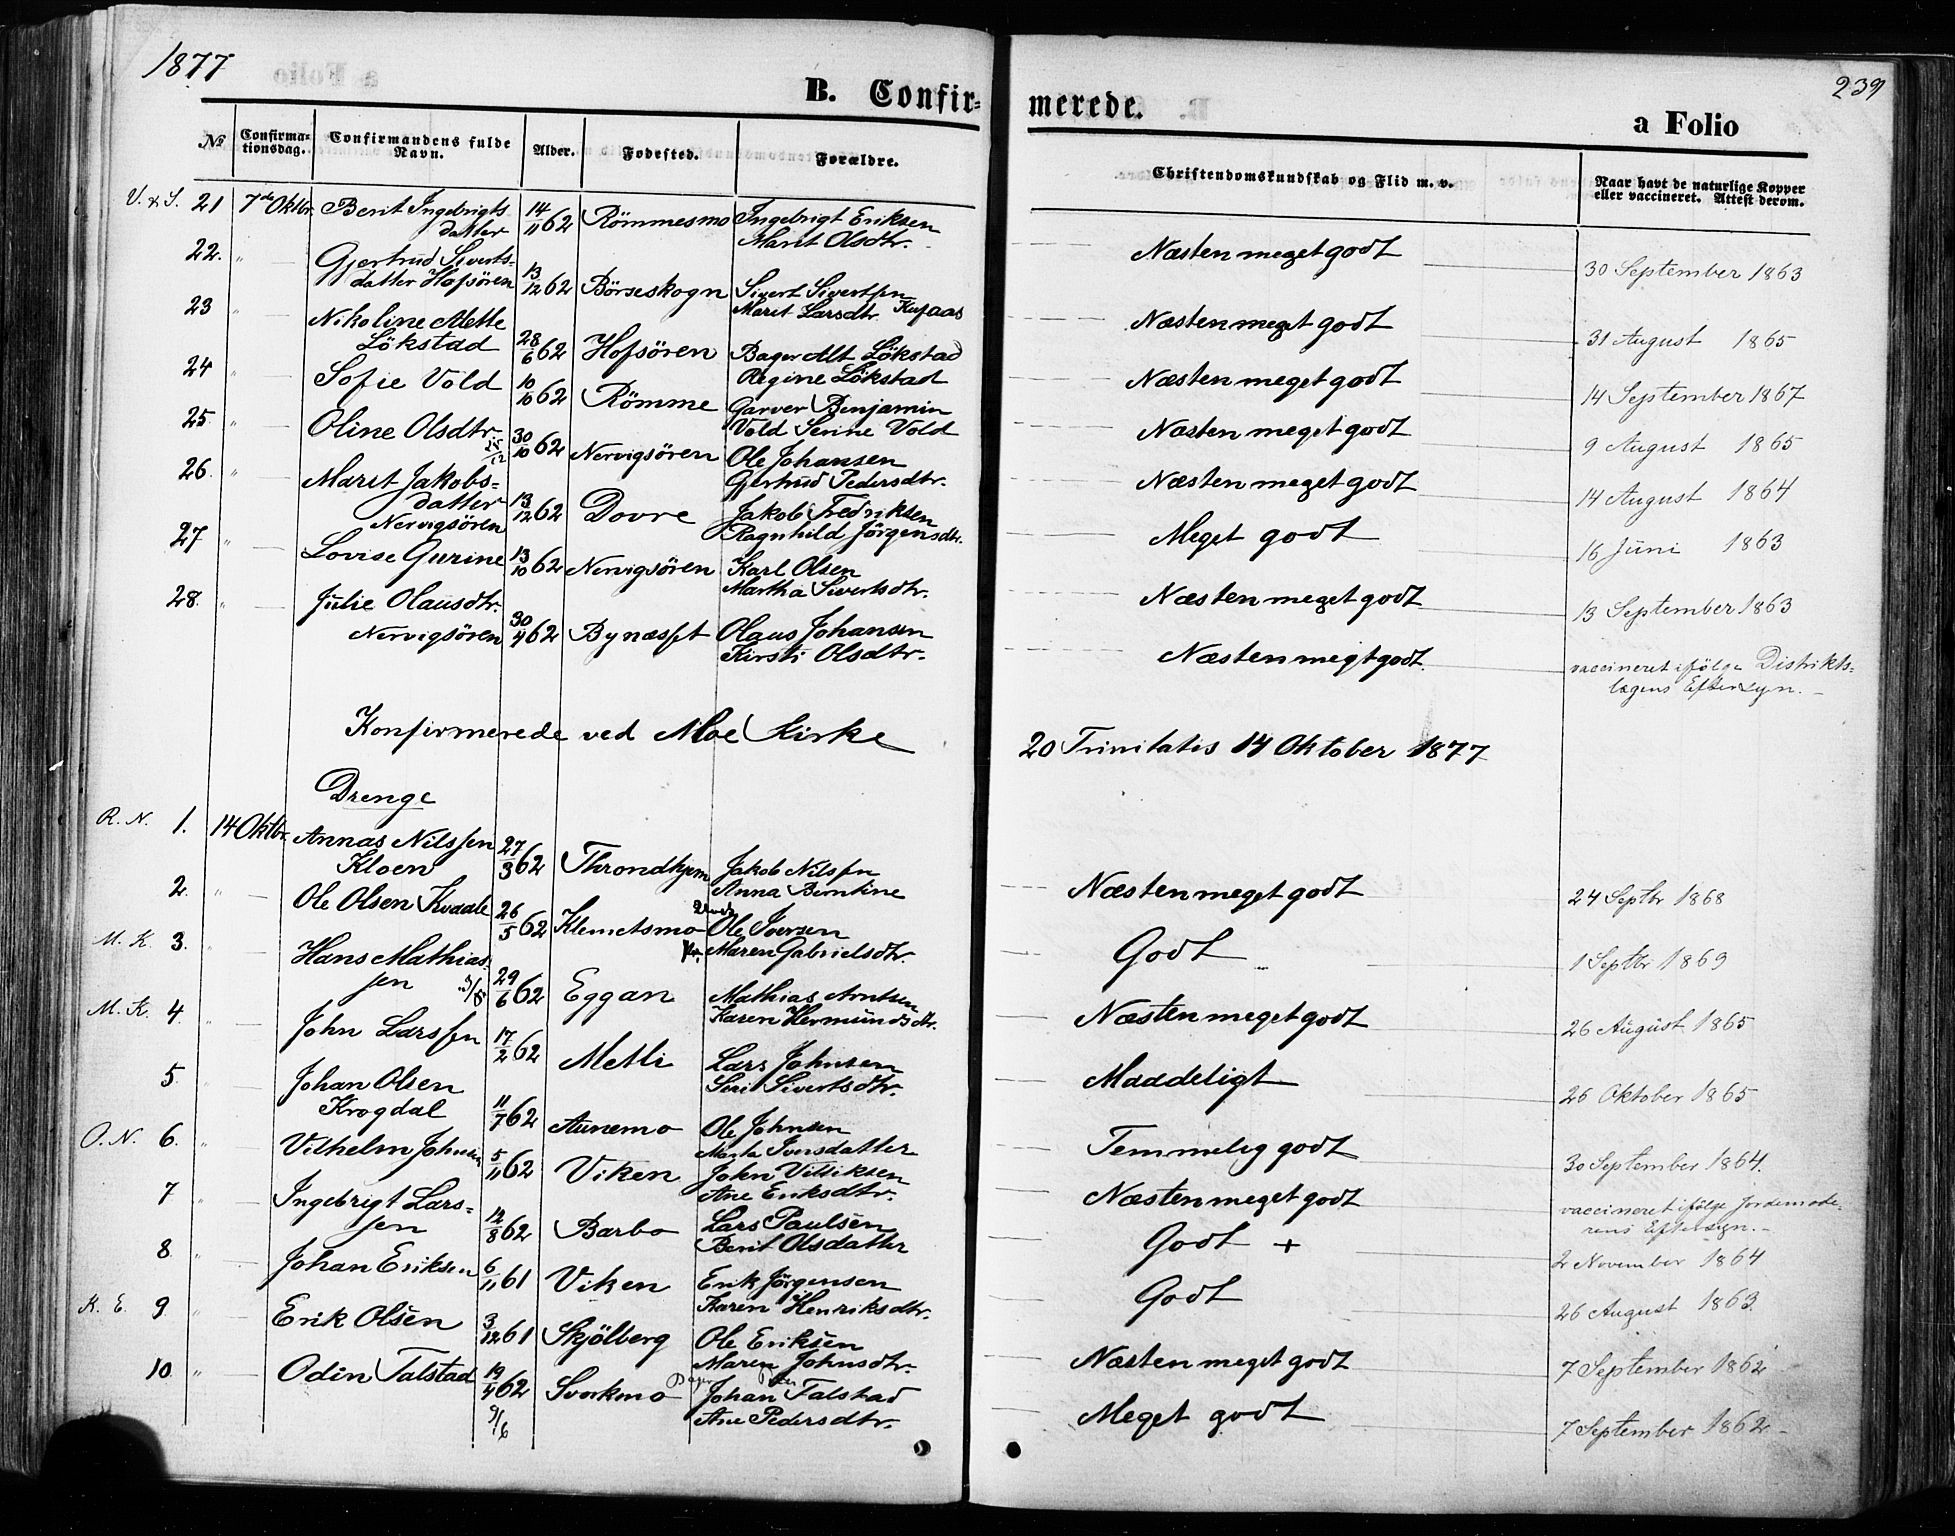 1877
B. Confir-
merede.
239
a Folio
No
Confirma-
tionsdag.
Confirmandens fulde
Navn.
Alder.
Fødested.
Forældre.
Christendomskundskab og Flid m. v.
Naar havt de naturlige Kopper
eller vaccineret. Attest derom.
V. & S. 21 7de Oktbr. Berit Ingebrigts 14/11 62 Römmesmo Ingebrigt Eriksen
datter Marit Olsdtr.
Næsten meget godt 30 September 1863
22. " Gjertrud Siverts-
datter Hofsören 13/12 62 Börseskogn Sivert Sivertsen
Marit Larsdtr.
Næsten meget godt 31 August 1865
23 " Nikoline Mette
Lökstad 28/6 62 Hofsören Bager Alt Lökstad
Regine Lökstad
Næsten meget godt 14 September 1867
24 " Sofie Vold 10/10 62 Römme Garver Benjamin
Vold Serine Vold
Næsten meget godt 9 August 1865
25. " Oline Olsdtr. 30/10 62 Nervigsören Ole Johansen
Gjertrud Pedersdtr.
Næsten meget godt 14 August 1864
26. " Marit Jakobs-
datter 13/12 62 Dovre Jakob Fredriksen
Nervigsören Ragnhild Jörgensdtr.
Meget godt 16 Juni 1863
27 " Lovise Gurine 13/10 62 Nervigsören Karl Olsen
Martha Sivertsdtr.
Næsten meget godt 13 September 1863
28. " Julie Olausdtr.
Nervigsören 30/4 62 Bynæsset Olaus Johansen
Kirsti Olsdtr.
Næsten megt godt. vaccineret ifölge Distrikts-
lægens Eftersyn.
Konfirmerede ved Moe Kirke
20 Trinitatis 14 Oktober 1877
Drenge
R. N. 1. 14 Oktbr. Annas Nilssen
Kloen 27/3 62 Throndhjem Jakob Nilsen
Anna Berntine
Næsten meget godt 24 Septbr 1868
2. " Ole Olsen Kvaale 26/5 62 Klemetsmo Ole Iversen
Maren Gabrielsdtr.
Godt 1 Septbr 1869
M. K. 3. " Hans Mathias-
sen 29/6 62 Eggan Mathias Arntsen
Karen Hermundsdtr.
Næsten meget godt 26 August 1865
M. K. 4 " John Larssen 17/2 62 Metli Lars Johnsen
Seri Sivertsdtr.
Maadeligt 26 Oktober 1865
5. " Johan Olsen
Krogdal 11/7 62 Aunemo Ole Johnsen
Marta Iversdatter
Temmelig godt 30 September 1864.
O. N. 6. " Vilhelm Johnsen 5/11 62 Viken John Villiksen
Ane Eriksdtr.
Næsten meget godt vaccineret ifölge Jordemode-
rens Eftersyn.
7 " Ingebrigt Lars-
sen 12/8 62 Barbo Lars Paulsen
Berit Olsdatter
Godt + 2 November 1864
8 " Johan Eriksen 6/11 61 Viken Erik Jörgensen
Karen Henriksdtr.
Godt 26 August 1863.
K. E. 9. " Erik Olsen 3/12 61 Skjölberg Ole Eriksen
Maren Johnsdtr.
Næsten meget godt 7 September 1862
10. " Odin Talstad 19/4 62 Svorkmo Johan Talstad
9/6 Ane Pedersdtr.
Meget godt 7 September 1862